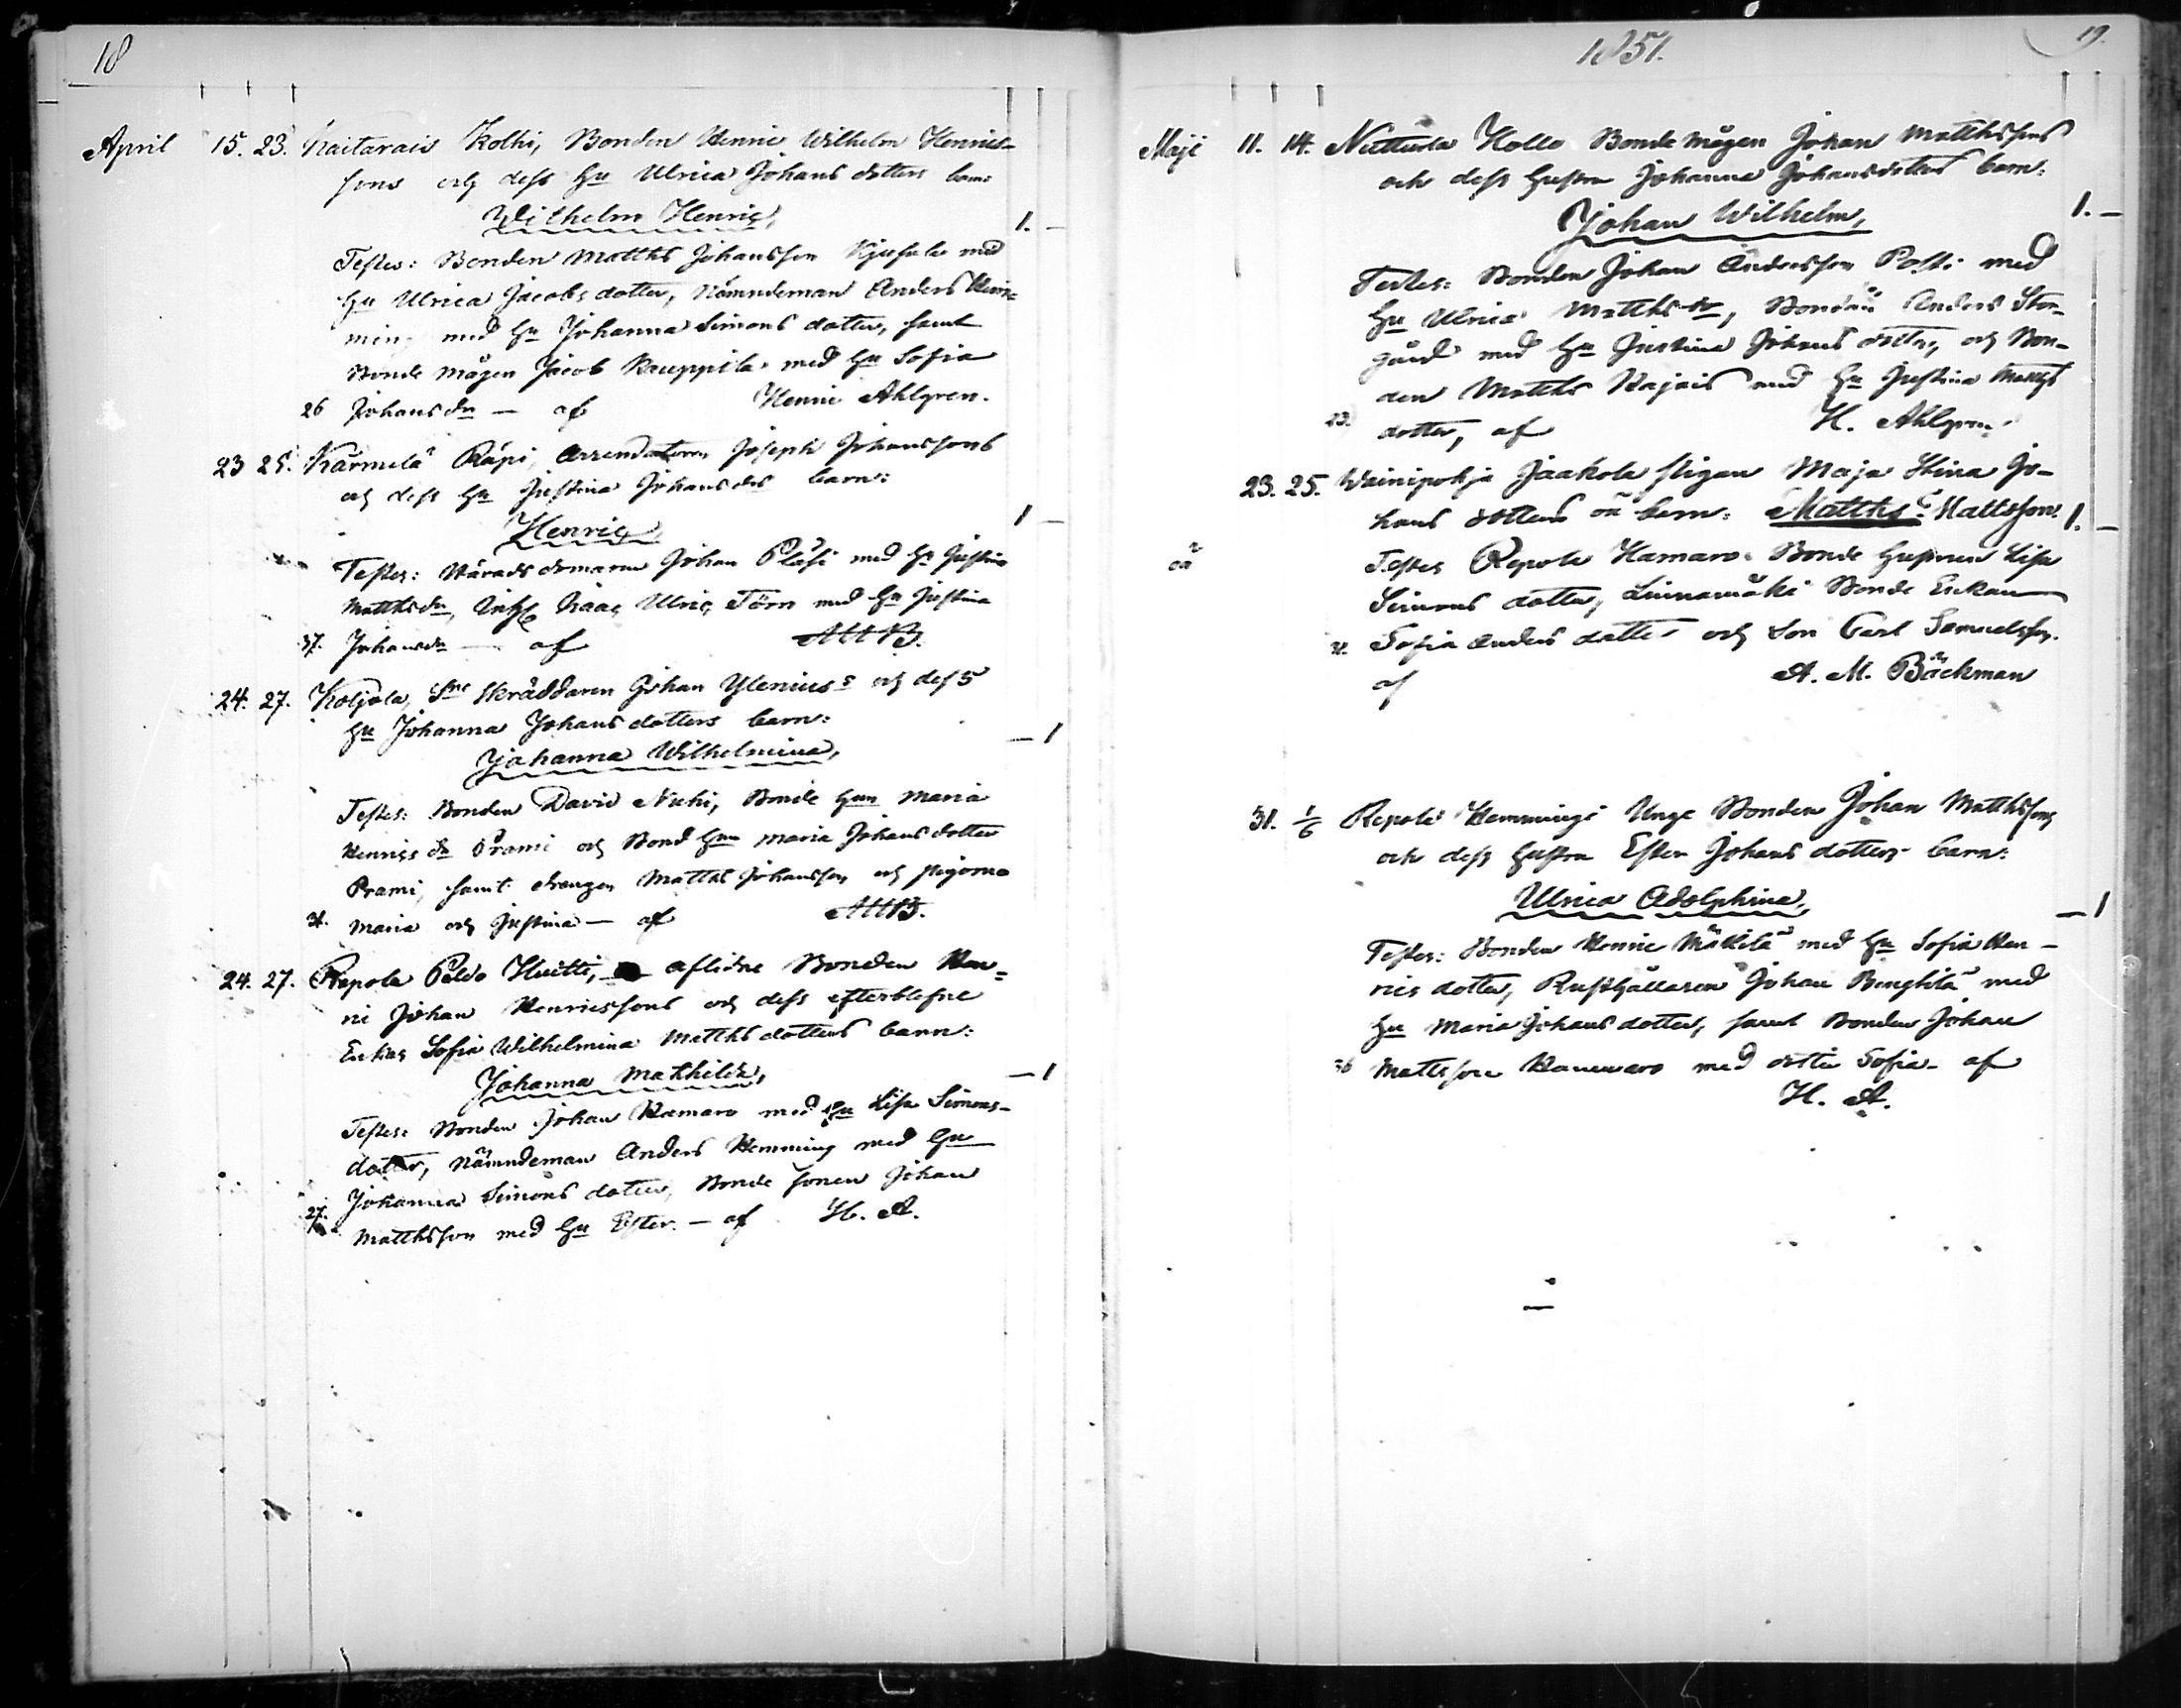 18
April 15. 23. Kaitarais Kolhi, Bonden Henric Wilhelm Henrics-
sons och dess Hu Ulrica Johans dotters barn:
Wilhelm Henric, 1. —
Testes: Bonden Matths Johansson Kjusala med
Hu Ulrica Jacobs dotter, Nämndeman Anders Hem-
ming med Hu Johanna Simons dotter, samt
Bonde mågen Jacob Kauppila med Hu Sofia
26 Johans dr — af Henric Ahlgren.
23 25. Kärmelä Räpi, Arrendatoren Joseph Johanssons
och dess Hu Justina Johansdrs barn:
Henric 1 —
Testes: Härads domaren Johan Pläsi med Hu Justina
Matthsdr, Isaac Ulric Törn med Hu Justina
37. Johansdr — af AMB.
24. 27. Koljola, Skräddaren Johan Ylenius's och dess
Hu Johanna Johans dotters barn:
Johanna Wilhelmina, — 1
Testes: Bonden David Nuhi, Bonde Hun Maria
Henrics dr Prami och Bond Hun Maria Johans dotter
Prami, samt drengen Matths Johansson och pigorna
Maria och Justina — af AMB.
24. 27. Repola Peldo Huitti, aflidne Bonden Hen-
ric Johan Henricssons och dess efterblefne
Enkas Sofia Wilhelmina Matths dotters barn:
Johanna Mathilda, — 1
Testes: Bonden Johan Kamaro med Hu Lisa Simons-
dotter, Nämndeman Anders Hemming med Hu
Johanna Simons dotter, Bonde sonen Johan
27. Matthsson med Hu Ester. — af H. A.
1851. 19.
Maji 11. 14. Nutturla Hollo Bonde mågen Johan Matthssons
och dess hustru Johanna Johansdotters barn:
Johan Wilhelm, 1. —
Testes: Bonden Johan Andersson Posti med
Hu Ulrica Matths dr, Bonden Anders Stor-
gård med Hu Justina Johans dotter, och Bon-
den Matths Kajais med Hu Justina Matths
23. dotter, af H. Ahlgren.
23. 25. Wainipohja Jaakola pigan Maja Stina Jo-
hans dotters oä barn: Matths Mattsson. 1. —
oä Testes Repola Kamaro Bonde hustrun Lisa
Simons dotter, Linnamäki Bonde Enkan
Sofia Anders dotter och son Carl Samuelsson.
af A. M. Bäckman
31. 1/6 Repola Hemmingi Unge Bonden Johan Matthssons
och dess hustru Ester Johans dotters barn:
Ulrica Adolphina, — 1
Testes: Bonden Henric Mäkilä med Hu Sofia Hen-
rics dotter, Rusthållaren Johan Benghilä med
Hu Maria Johans dotter, samt Bonden Johan
26 Mattsson med dotter Sofia — af
H. A.